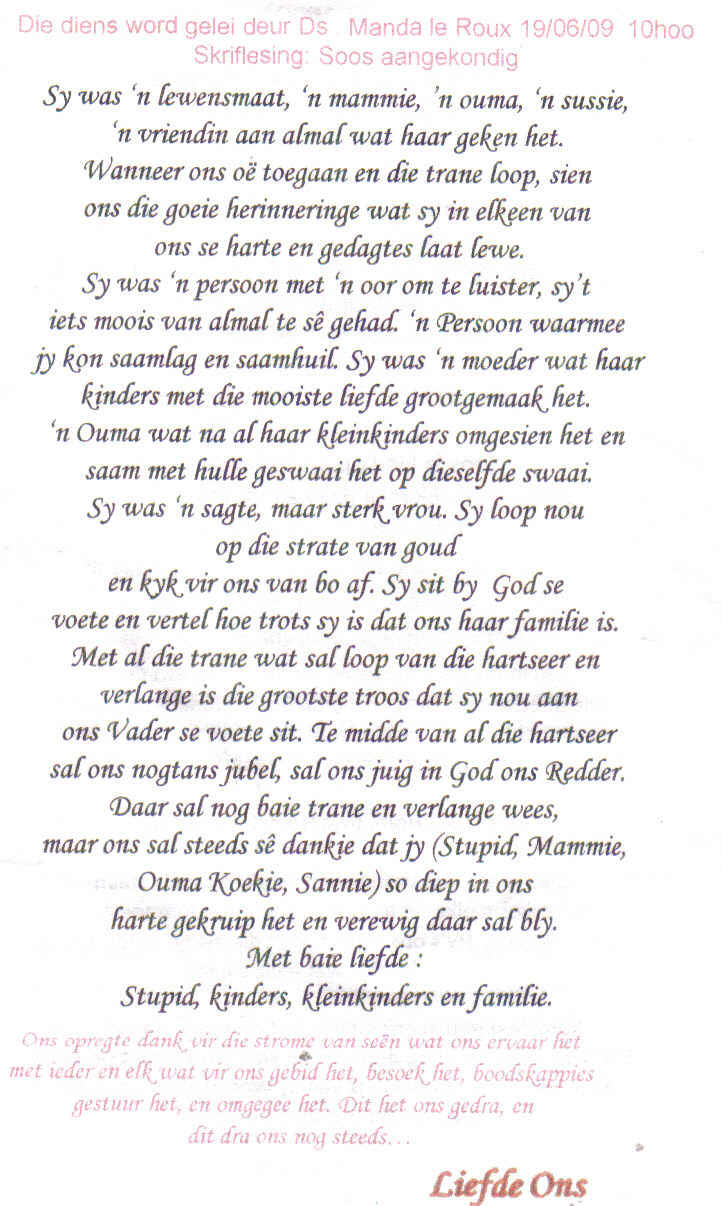 Die diens word gelei deur Ds . Manda le Roux 19/06/09 10hoo
Skriflesing: Soos aangekondig
Sy was ‘n lewensmaat, ‘n mammie, ’n ouma, ‘n sussie,
‘n vriendin aan almal wat haar geken het.
Wanneer ons oë toegaan en die trane loop, sien
ons die goeie herinneringe wat sy in elkeen van
ons se harte en gedagtes laat lewe.
Sy was ‘n persoon met ‘n oor om te luister, sy’t
iets moois van almal te sê gehad. ‘n Persoon waarmee
jy kon saamlag en saamhuil. Sy was ‘n moeder wat haar
kinders met die mooiste liefde grootgemaak het.
‘n Ouma wat na al haar kleinkinders omgesien het en
saam met hulle geswaai het op dieselfde swaai.
Sy was ‘n sagte, maar sterk vrou. Sy loop nou
op die strate van goud
en kyk vir ons van bo af. Sy sit by God se
voete en vertel hoe trots sy is dat ons haar familie is.
Met al die trane wat sal loop van die hartseer en
verlange is die grootste troos dat sy nou aan
ons Vader se voete sit. Te midde van al die hartseer
sal ons nogtans jubel, sal ons juig in God ons Redder.
Daar sal nog baie trane en verlange wees,
maar ons sal steeds sê dankie dat jy (Stupid, Mammie,
Ouma Koekie, Sannie) so diep in ons
harte gekruip het en verewig daar sal bly.
Met baie liefde :
Stupid, kinders, kleinkinders en familie.
Ons opregte dank vir die strome van seën wat ons ervaar het
met ieder en elk wat vir ons gebid het, besoek het, boodskappies
gestuur het, en omgegee het. Dit het ons gedra, en
dit dra ons nog steeds…
Liefde Ons